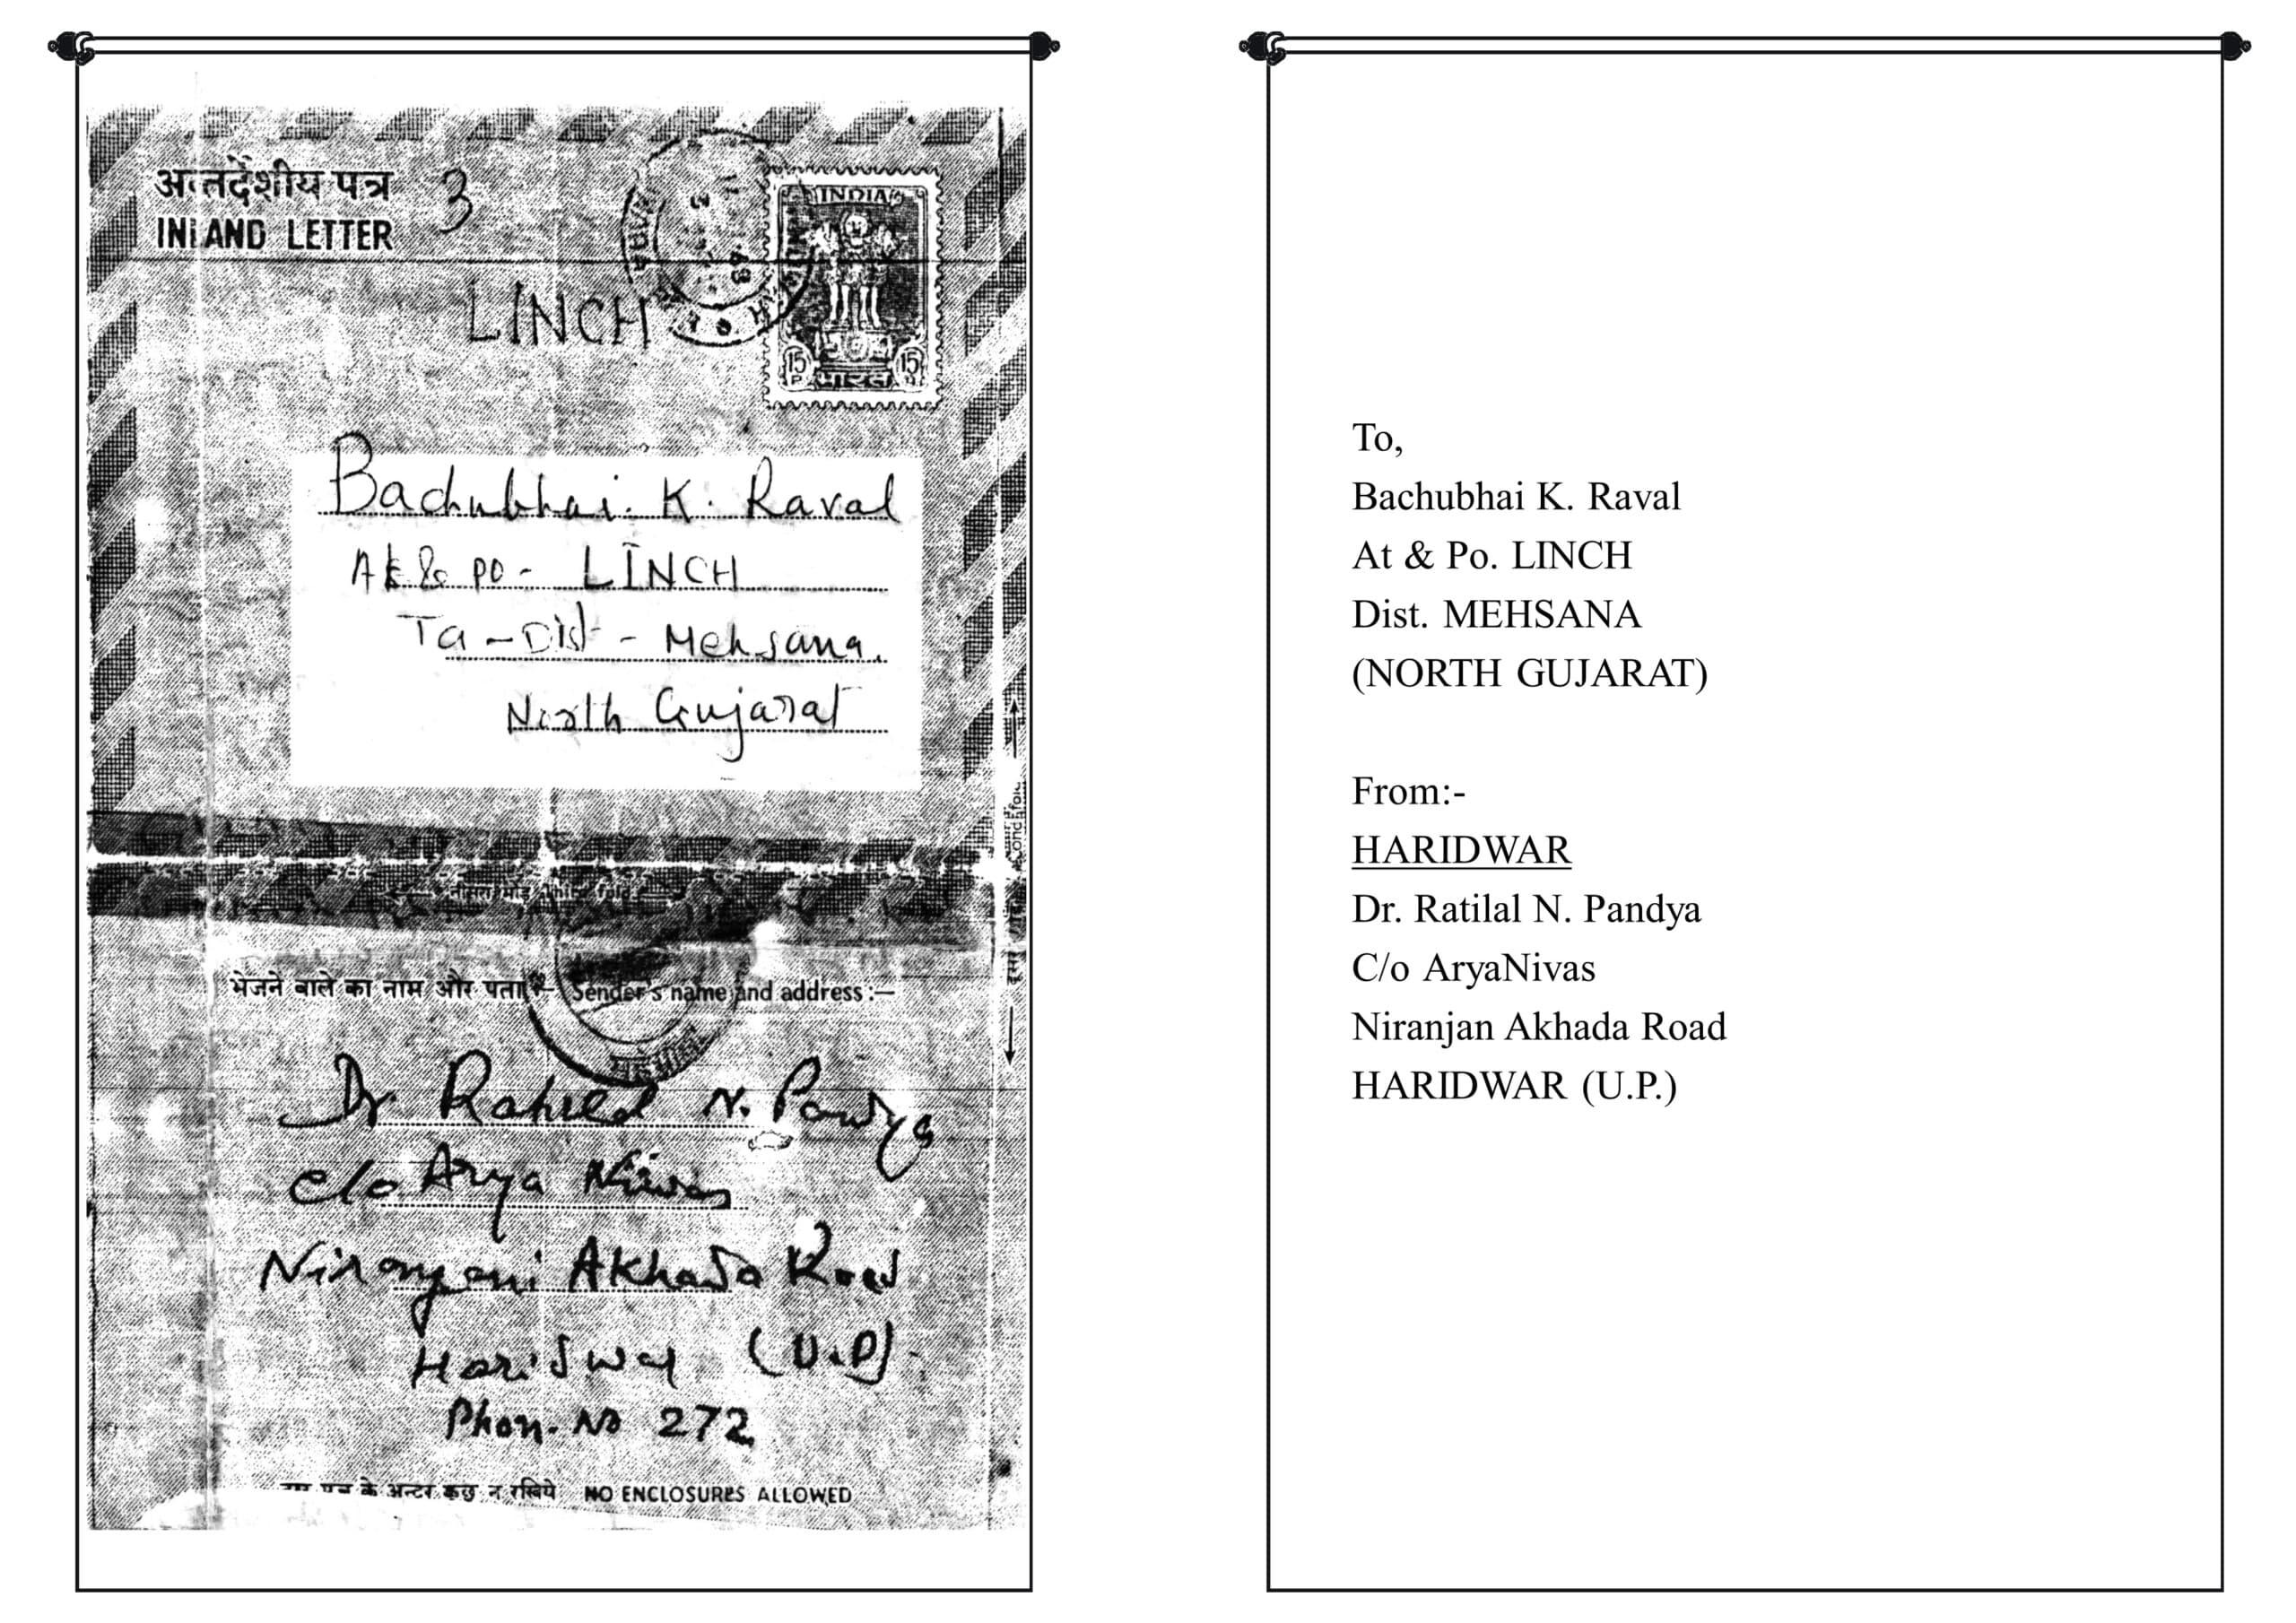 अन्तर्देशीय पत्र 3
INLAND LETTER
LINCH
INDIA
15 15
P
भारत
Bachubhai. K. Raval
At & po - LINCH
Ta - Dist - Mehsana.
North Gujarat
तीसरा मोड़ Third fold
Second fold
भेजने वाले का नाम और पता :— Sender's name and address :—
Dr Ratilal N. Pandya
c/o Arya Niwas
Niranjani Akhada Road
Haridwar (U.P).
Phon. No 272
इस पत्र के अन्दर कुछ न रखिये NO ENCLOSURES ALLOWED
To,
Bachubhai K. Raval
At & Po. LINCH
Dist. MEHSANA
(NORTH GUJARAT)
From:-
HARIDWAR
Dr. Ratilal N. Pandya
C/o AryaNivas
Niranjan Akhada Road
HARIDWAR (U.P.)